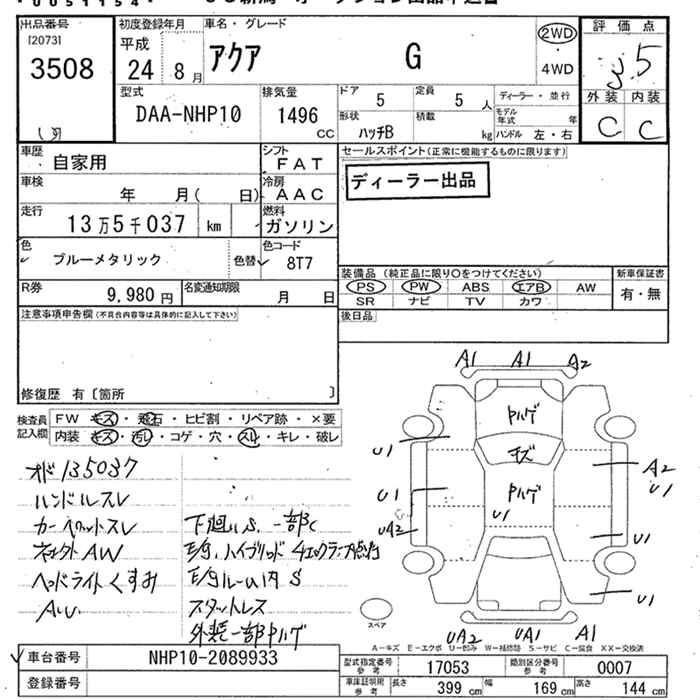 出品番号
[2073]
3508
初度登録年月
平成
24 8月
車名・グレード
アクア G
2WD
4WD
評価点
3.5
外装 内装
C C
型式
DAA-NHP10
排気量
1496
CC
ドア
5
定員
5人
形状
ハッチB
積載
kg
ディーラー・並行
モデル年式 年
ハンドル 左・右
車歴
自家用
シフト
FAT
車検
年 月( 日)
冷房
AAC
走行
13万5千037 km
燃料
ガソリン
色
ブルーメタリック
色替
色コード
8T7
R券
9,980円
名変通知期限
月 日
セールスポイント(正常に機能するものに限ります)
ディーラー出品
装備品 (純正品に限り〇をつけてください)
PS PW ABS エアB AW
SR ナビ TV カワ
新車保証書
有・無
後日品
注意事項申告欄(不具合内容等は具体的に記入して下さい)
修復歴 有〔箇所 〕
検査員
記入欄
FW キズ・飛石・ヒビ割・リペア跡・×要
内装 キズ・汚レ・コゲ・穴・スレ・キレ・破レ
オド135037
ハンドルスレ
AW
ヘッドライトくすみ
下廻りS、一部C
ハイブリッド
ルーム内S
スタットレス
外装一部Pハゲ
A1 A1 A2
Pハゲ
キズ
Pハゲ
U1
U1
U1
UA2
A2
U1
U1
U1
UA2 UA1 A1
スペア
A-キズ E-エクボ U-凹み W-補修跡 S-サビ C-腐食 XX-交換済
車台番号
NHP10-2089933
登録番号
型式指定番号
参考
17053
類別区分番号
参考
0007
車庫証明用
参考
長さ
399cm
幅
169cm
高さ
144cm